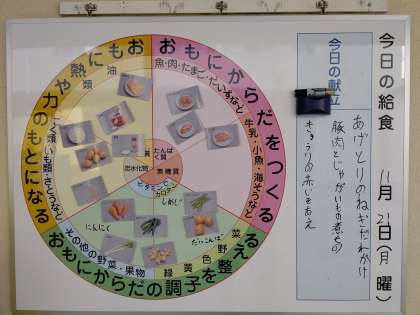 今日の給食
11月21日(月曜)
今日の献立
あげとりのねぎだれかけ
豚肉とじゃがいもの煮もの
きゅうりの赤じそあえ
おもにからだをつくる
魚・肉・たまご・だいずなど
牛乳・小魚・海そうなど
おもに熱や力のもとになる
油類
こく類・いも類・さとうなど
おもにからだの調子を整える
緑黄色野菜
その他の野菜・果物
たんぱく質
無機質
炭水化物
ビタミンC
カロテン
しめじ
にんにく
だいこんば